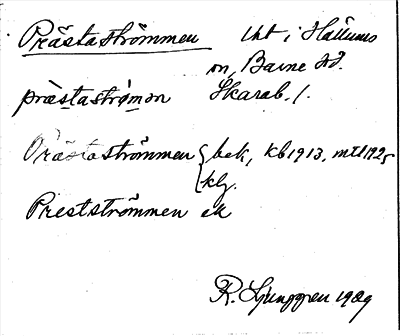 Prästaströmmen lht i Hällums
sn, Barne hd.
præstastrømən Skarab. l.
Prästaströmmen { bek, kb 1913, mtl 1925
klg.
Prestströmmen ek
R. Ljunggren 1929